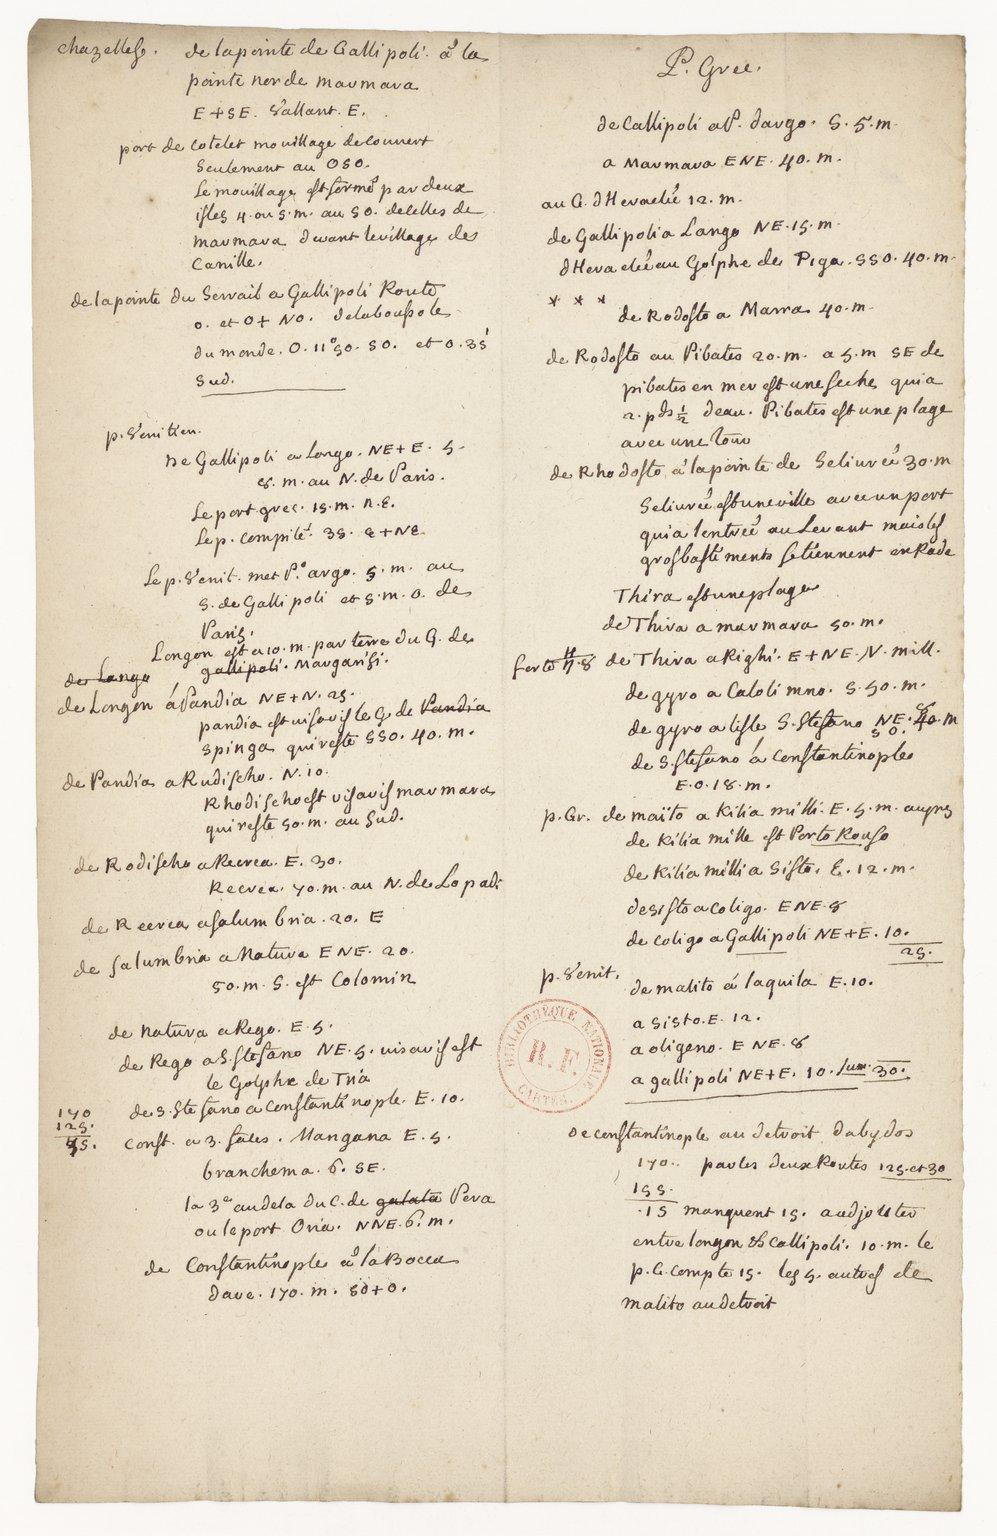 chazelles. de lapointe de Gallipoli. á la
pointe nor de marmara
E+SE. S'allant. E.
port de cotelet mouillage decouvert
Seulement au OSO.
Le mouillage est formé par deux
isles 4. ou 5. m. au SO. de celles de
marmara devant le village de
Canille.
de lapointe du Serrail a Gallipoli Route
O. et O+NO. de la boussole
du monde. O. 11°50. SO. et O. 35'
Sud.
p. Venitien.
De Gallipoli a Longo. NE+E. 5.
8. m. au N. de Paris.
Le port. grec. 15. m. n. E.
Le p. compilé. 35. E+NE
Le p. Venit. met P.° argo. 5. m. au
S. de Gallipoli et 5. m. O. de
Paris.
Longon est a 10. m. par terre du G. de
gallipoli. Margarisi.
de Longo
de Longon á Pandia NE+N. 25.
pandia est visavis le G. de Pandia
Spinga qui reste SSO. 40. m.
de Pandia a Rudischo. N. 10.
Rhodischo est visavis marmara
qui reste 50. m. au Sud.
de Rodischo a Recrea. E. 30.
Recrea. 70. m. au N. de Lopadi
de Recrea a Salumbria. 20. E
de Salumbria a Natura ENE. 20.
50. m. S. est Colomin
de Natura a Rego. E. 5.
de Rego a S. Stefano NE. 5. visavis est
le Golphe de Tria
de S. Stefano a Constantinople. E. 10.
170
125.
45.
Const. a 3. fales. Mangana E. 5.
branchema. 6. SE.
la 3e au dela du C. de galata Pera
ou le port Oria. NNE. 6. m.
de Constantinople á la Bocca
dave. 170. m. SO+O.
P. Grec.
de Callipoli a P. dargo. S. 5. m.
a Marmara ENE. 40. m.
au G. d'Heraclié 12. m.
de Gallipoli a Longo NE. 15. m.
d'Heraclié au Golphe de Piga. SSO. 40. m.
* * *
de Rodosto a Marra 40. m.
de Rodosto au Pibates 20. m. a 5. m SE de
pibates en mer est une seche qui a
2. pds ½ deau. Pibates est une plage
avec une tour
de Rhodosto á lapointe de Selivreé 30. m
Selivreé est une ville avec un port
qui a lentreé au Levant mais les
gros bastiments se tiennent en Rade
Thira est une plage
de Thira a marmara 50. m.
de Thira a Righi. E+NE. N. mill.
de gyro a Calolimno. S. 50. m.
de gyro a lisle S. Stefano NE. 40. m
SO.
de S. Stefano á Constantinople
E. O. 18. m.
p. Gr. de maïto a Kilia milli. E. 5. m. aupres
de Kilia mille est Porto Rouso
de Kilia milli a Sisto. E. 12. m.
de sisto a coligo. ENE. 8
de coligo a Gallipoli NE+E. 10.
25.
p. Venit. de malito á laquila E. 10.
a sisto. E. 12.
a oligeno. ENE. 8
a gallipoli NE+E. 10. sum. 30.
BIBLIOTHÈQUE NATIONALE
R. F.
CARTES.
de constantinople au detroit d'abydos
170. par les deux Routes 125. et 30
155.
.15 manquent 15. a adjouter
entre longon & Callipoli. 10. m. le
p. G. compte 15. les 5. autres de
malito au detroit